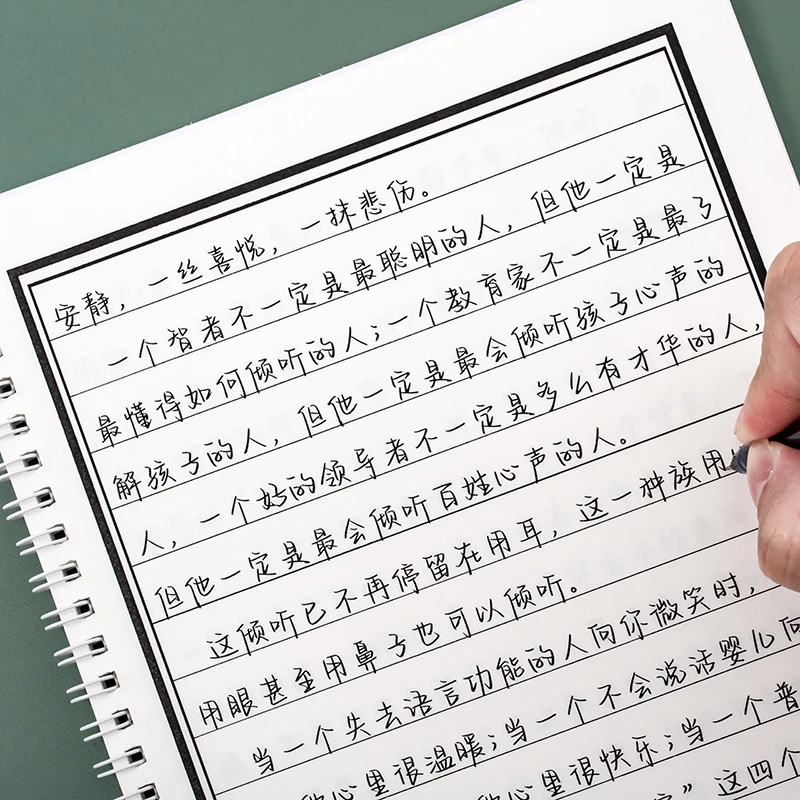 安静，一丝喜悦，一抹悲伤。
一个智者不一定是最聪明的人，但他一定是
最懂得如何倾听的人；一个教育家不一定是最了
解孩子的人，但他一定是最会倾听孩子心声的
人，一个好的领导者不一定是多么有才华的人，
但他一定是最会倾听百姓心声的人。
这倾听已不再停留在用耳，这一种族用
用眼甚至用鼻子也可以倾听。
当一个失去语言功能的人向你微笑时，
心里很温暖；当一个不会说话婴儿向
心里很快乐；当一个普
”这四个